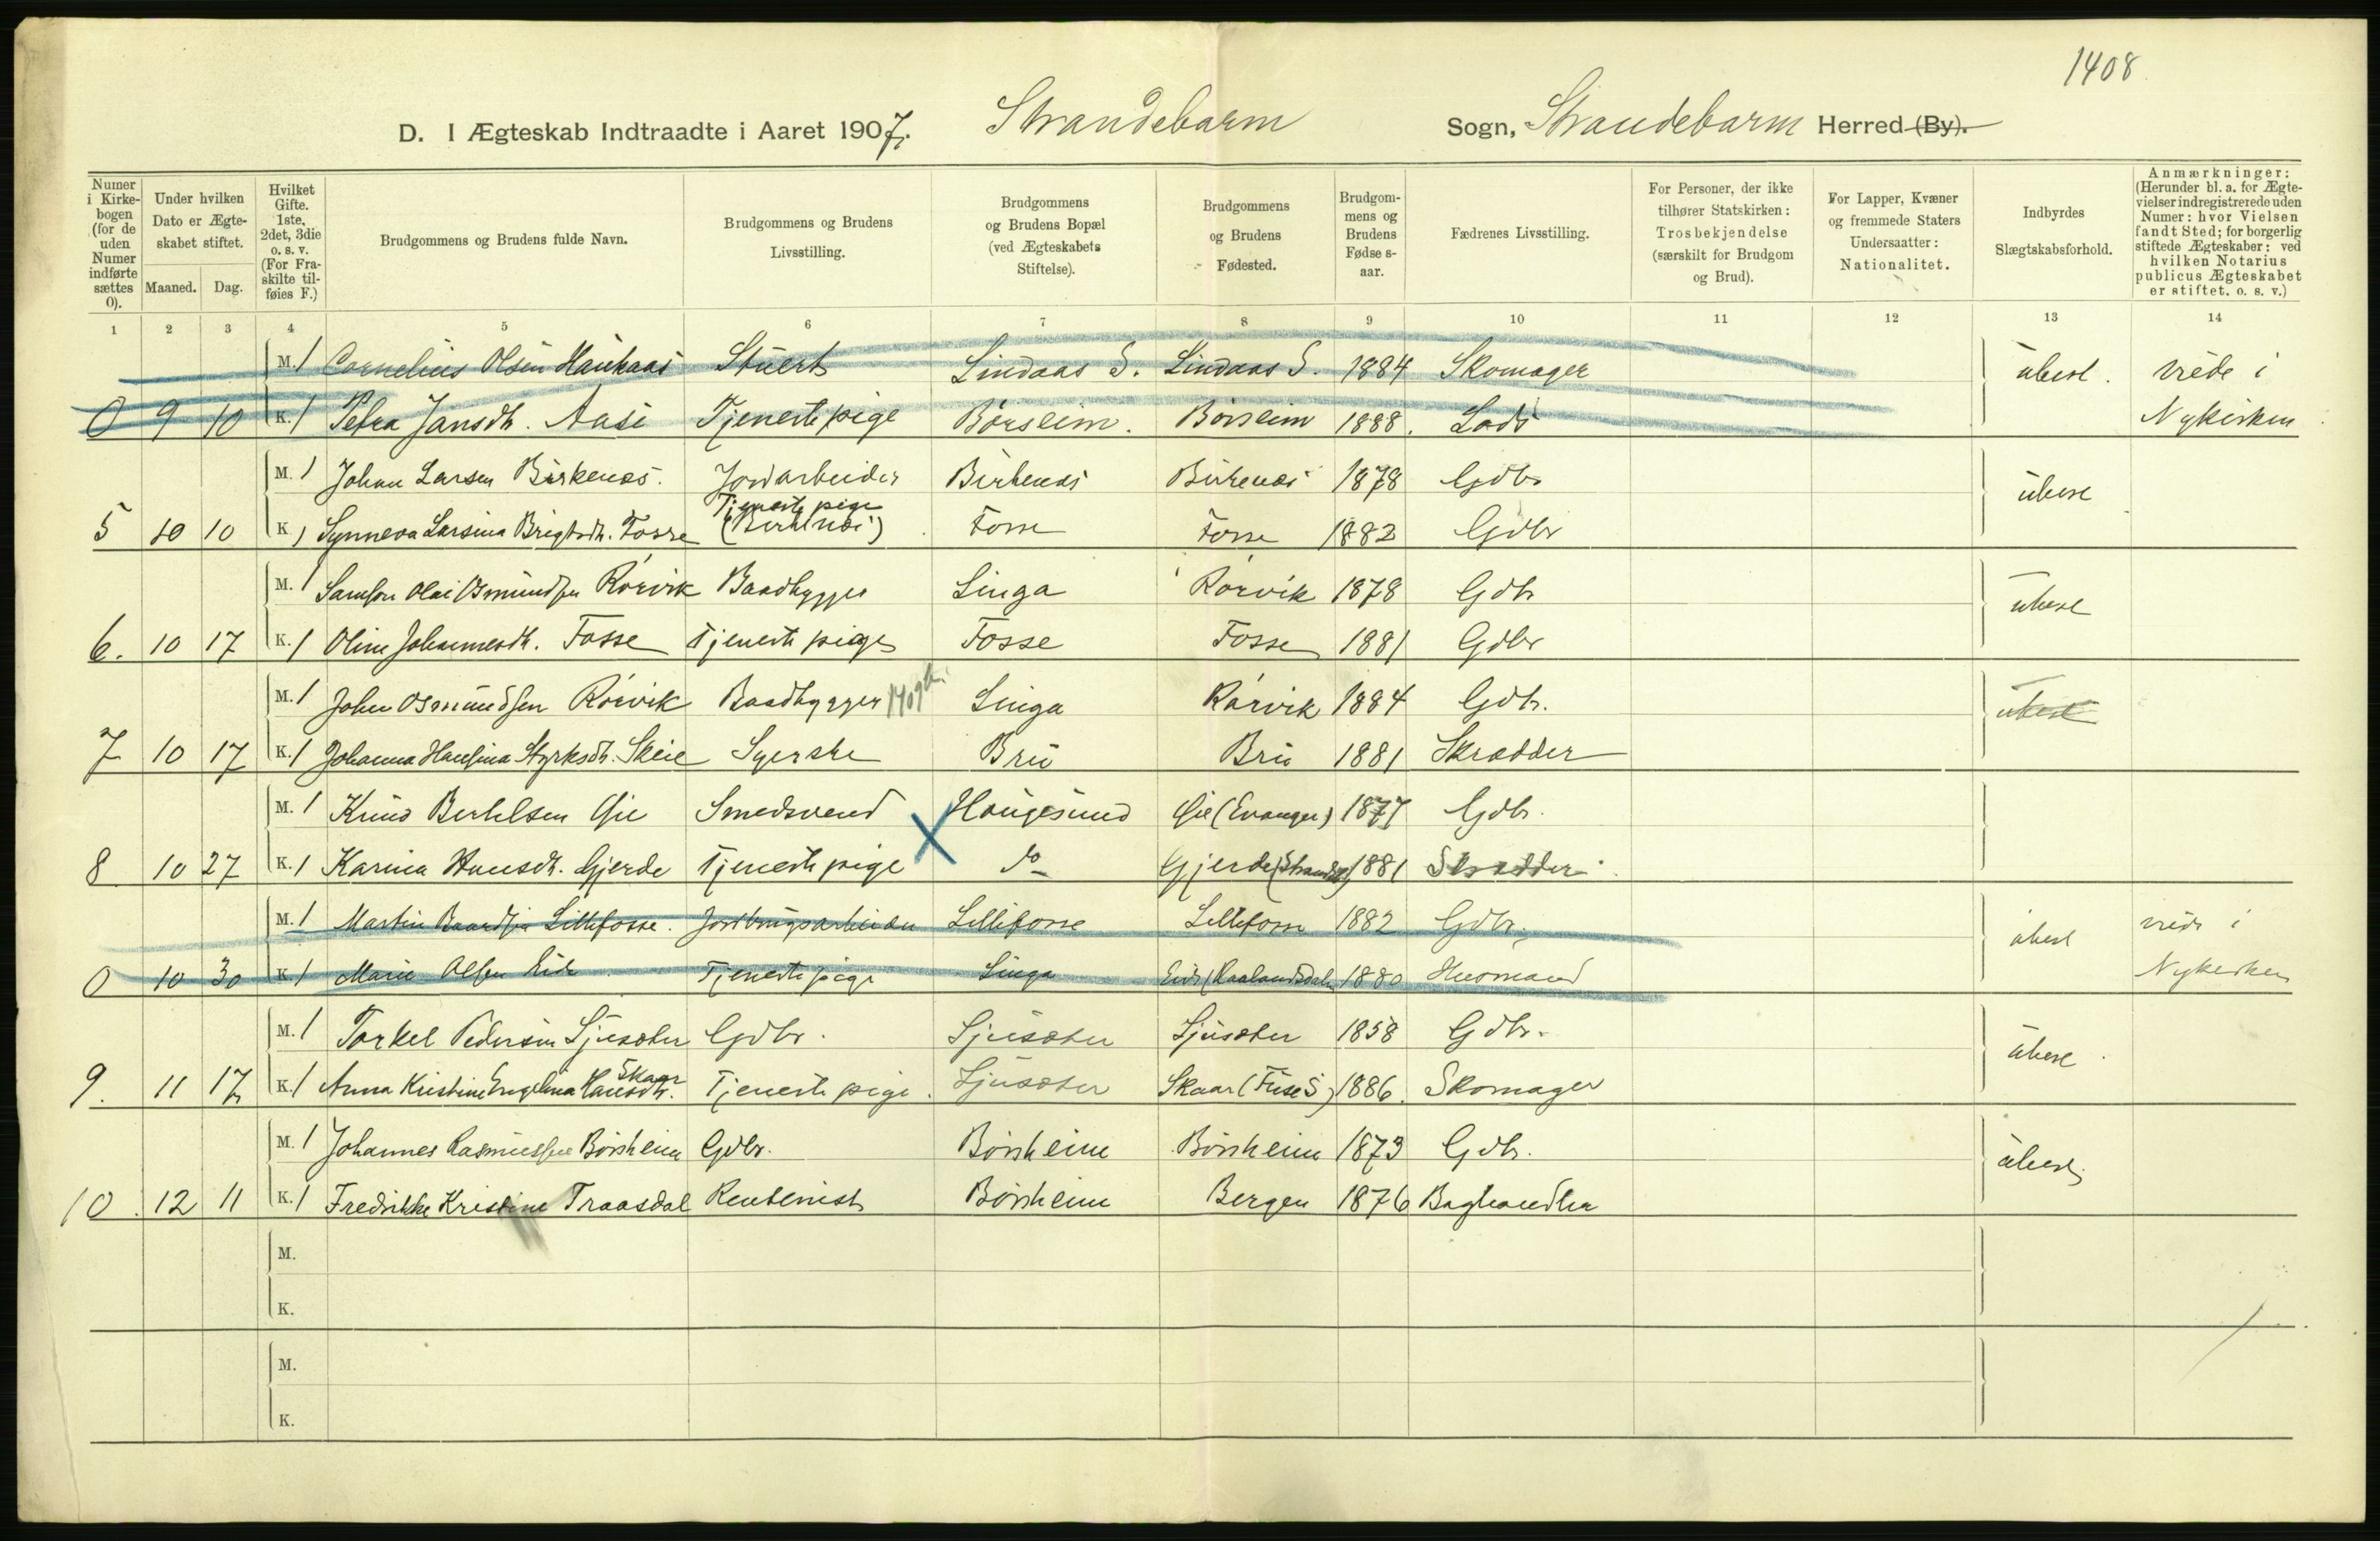 1408
D. I Ægteskab Indtraadte i Aaret 1907. Strandebarm Sogn, Strandebarm Herred (By).
Numer i Kirkebogen (for de uden Numer indførte sættes 0).
Under hvilken Dato er Ægteskabet stiftet.
Maaned. Dag.
Hvilket Gifte. 1ste, 2det, 3die o. s. v. (For Fraskilte tilføies F.)
Brudgommens og Brudens fulde Navn.
Brudgommens og Brudens Livsstilling.
Brudgommens og Brudens Bopæl (ved Ægteskabets Stiftelse).
Brudgommens og Brudens Fødested.
Brudgommens og Brudens Fødselsaar.
Fædrenes Livsstilling.
For Personer, der ikke tilhører Statskirken: Trosbekjendelse (særskilt for Brudgom og Brud).
For Lapper, Kvæner og fremmede Staters Undersaatter: Nationalitet.
Indbyrdes Slægtskabsforhold.
Anmærkninger: (Herunder bl. a. for Ægtevielser indregistrerede uden Numer: hvor Vielsen fandt Sted; for borgerlig stiftede Ægteskaber: ved hvilken Notarius publicus Ægteskabet er stiftet, o. s. v.)
1 2 3 4 5 6 7 8 9 10 11 12 13 14
M. 1 Cornelius Olsen Stuert Lindaas S. Lindaas S. 1884 Skomager ubesl. viede i
0 9 10 K. 1 Petra Jansdtr. Aase Tjenestepige Børsheim. Børsheim 1888. Lods Nykirken
M. 1 Johan Larsen Birkenæs. Jordarbeider Birkenæs Birkenæs 1878 Gdbr ubesl
5 10 10 K. 1 Synneva Larsina Brigtsdtr. Fosse Tjenestepige (Birkenæs) Fosse Fosse 1882 Gdbr
M. 1 Samson Olai Osmundsen Rørvik Baadbygger Linga Rørvik 1878 Gdbr ubesl
6. 10 17 K. 1 Oline Johannesdtr. Fosse Tjenestepige Fosse Fosse 1881 Gdbr
M. 1 Johan Osmundsen Rørvik Baadbygger Linga Rørvik 1884 Gdbr. ubesl
7 10 17 K. 1 Johanna Hansina Styrksdtr. Skeie Syerske Bru Bru 1881 Skrædder
M. 1 Knud Berthelsen Gie Smedsvend Haugesund Gie (Evanger) 1877 Gdbr.
8 10 27 K. 1 Karina Hansdtr. Gjerde Tjenestepige X do Gjerde 1881 Skrædder
M. 1 Martin Baardsen Lillefosse. Jordbrugsarbeider Lillefosse Lillefosse 1882 Gdbr. ubesl viede i
0 10 30 K. 1 Marie Olsen Eide Tjenestepige Linga Eide (Haalandsdalen 1880 Husmand Nykirken
M. 1 Torkel Pedersen Ljusæter Gdbr. Ljusæter Ljusæter 1858 Gdbr. ubesl.
9. 11 17 K. 1 Anna Kristine Engelina Hansdtr. Skaar Tjenestepige. Ljusæter Skaar (Fuse S) 1886. Skomager
M. 1 Johannes Rasmussen Børsheim Gdbr. Børsheim Børsheim 1873 Gdbr. ubesl.
10. 12 11 K. 1 Fredrikke Kristine Traasdal Rentenist Børsheim Bergen 1876 Baghandler
M.
K.
M.
K.